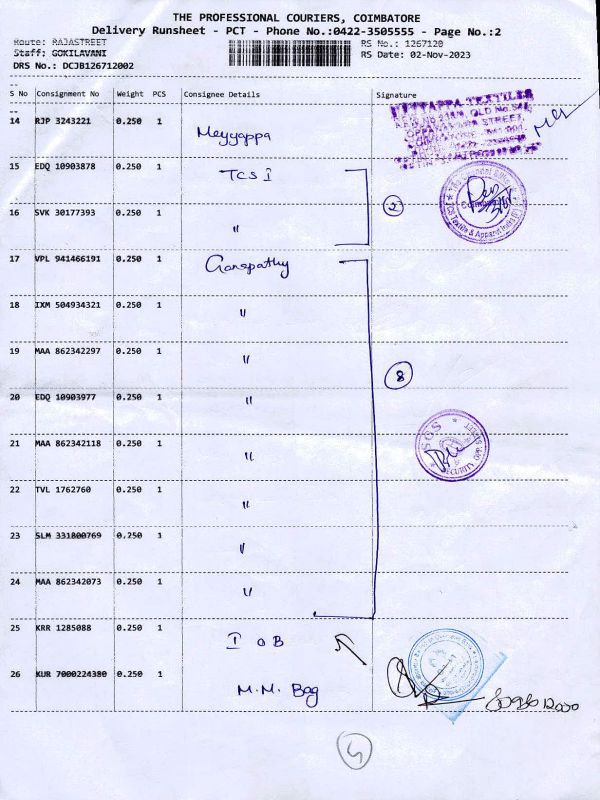 THE PROFESSIONAL COURIERS, COIMBATORE
Delivery Runsheet - PCT - Phone No.:0422-3505555 - Page No.:2
Route: RAJASTREET RS No.: 1267120
Staff: GOKILAVANI RS Date: 02-Nov-2023
DRS No.: DCJB126712002
S No Consignment No Weight PCS Consignee Details Signature
14 RJP 3243221 0.250 1 Meyyappa
15 EDQ 10903878 0.250 1 TCS I
2
16 SVK 30177393 0.250 1 "
17 VPL 941466191 0.250 1 Ganapathy
18 IXM 504934321 0.250 1 "
19 MAA 862342297 0.250 1 "
8
20 EDQ 10903977 0.250 1 "
21 MAA 862342118 0.250 1 "
SOS
SECURITY
22 TVL 1762760 0.250 1 "
23 SLM 331800769 0.250 1 "
24 MAA 862342073 0.250 1 "
25 KRR 1285088 0.250 1 I O B
26 KUR 7000224380 0.250 1 M.M. Bag